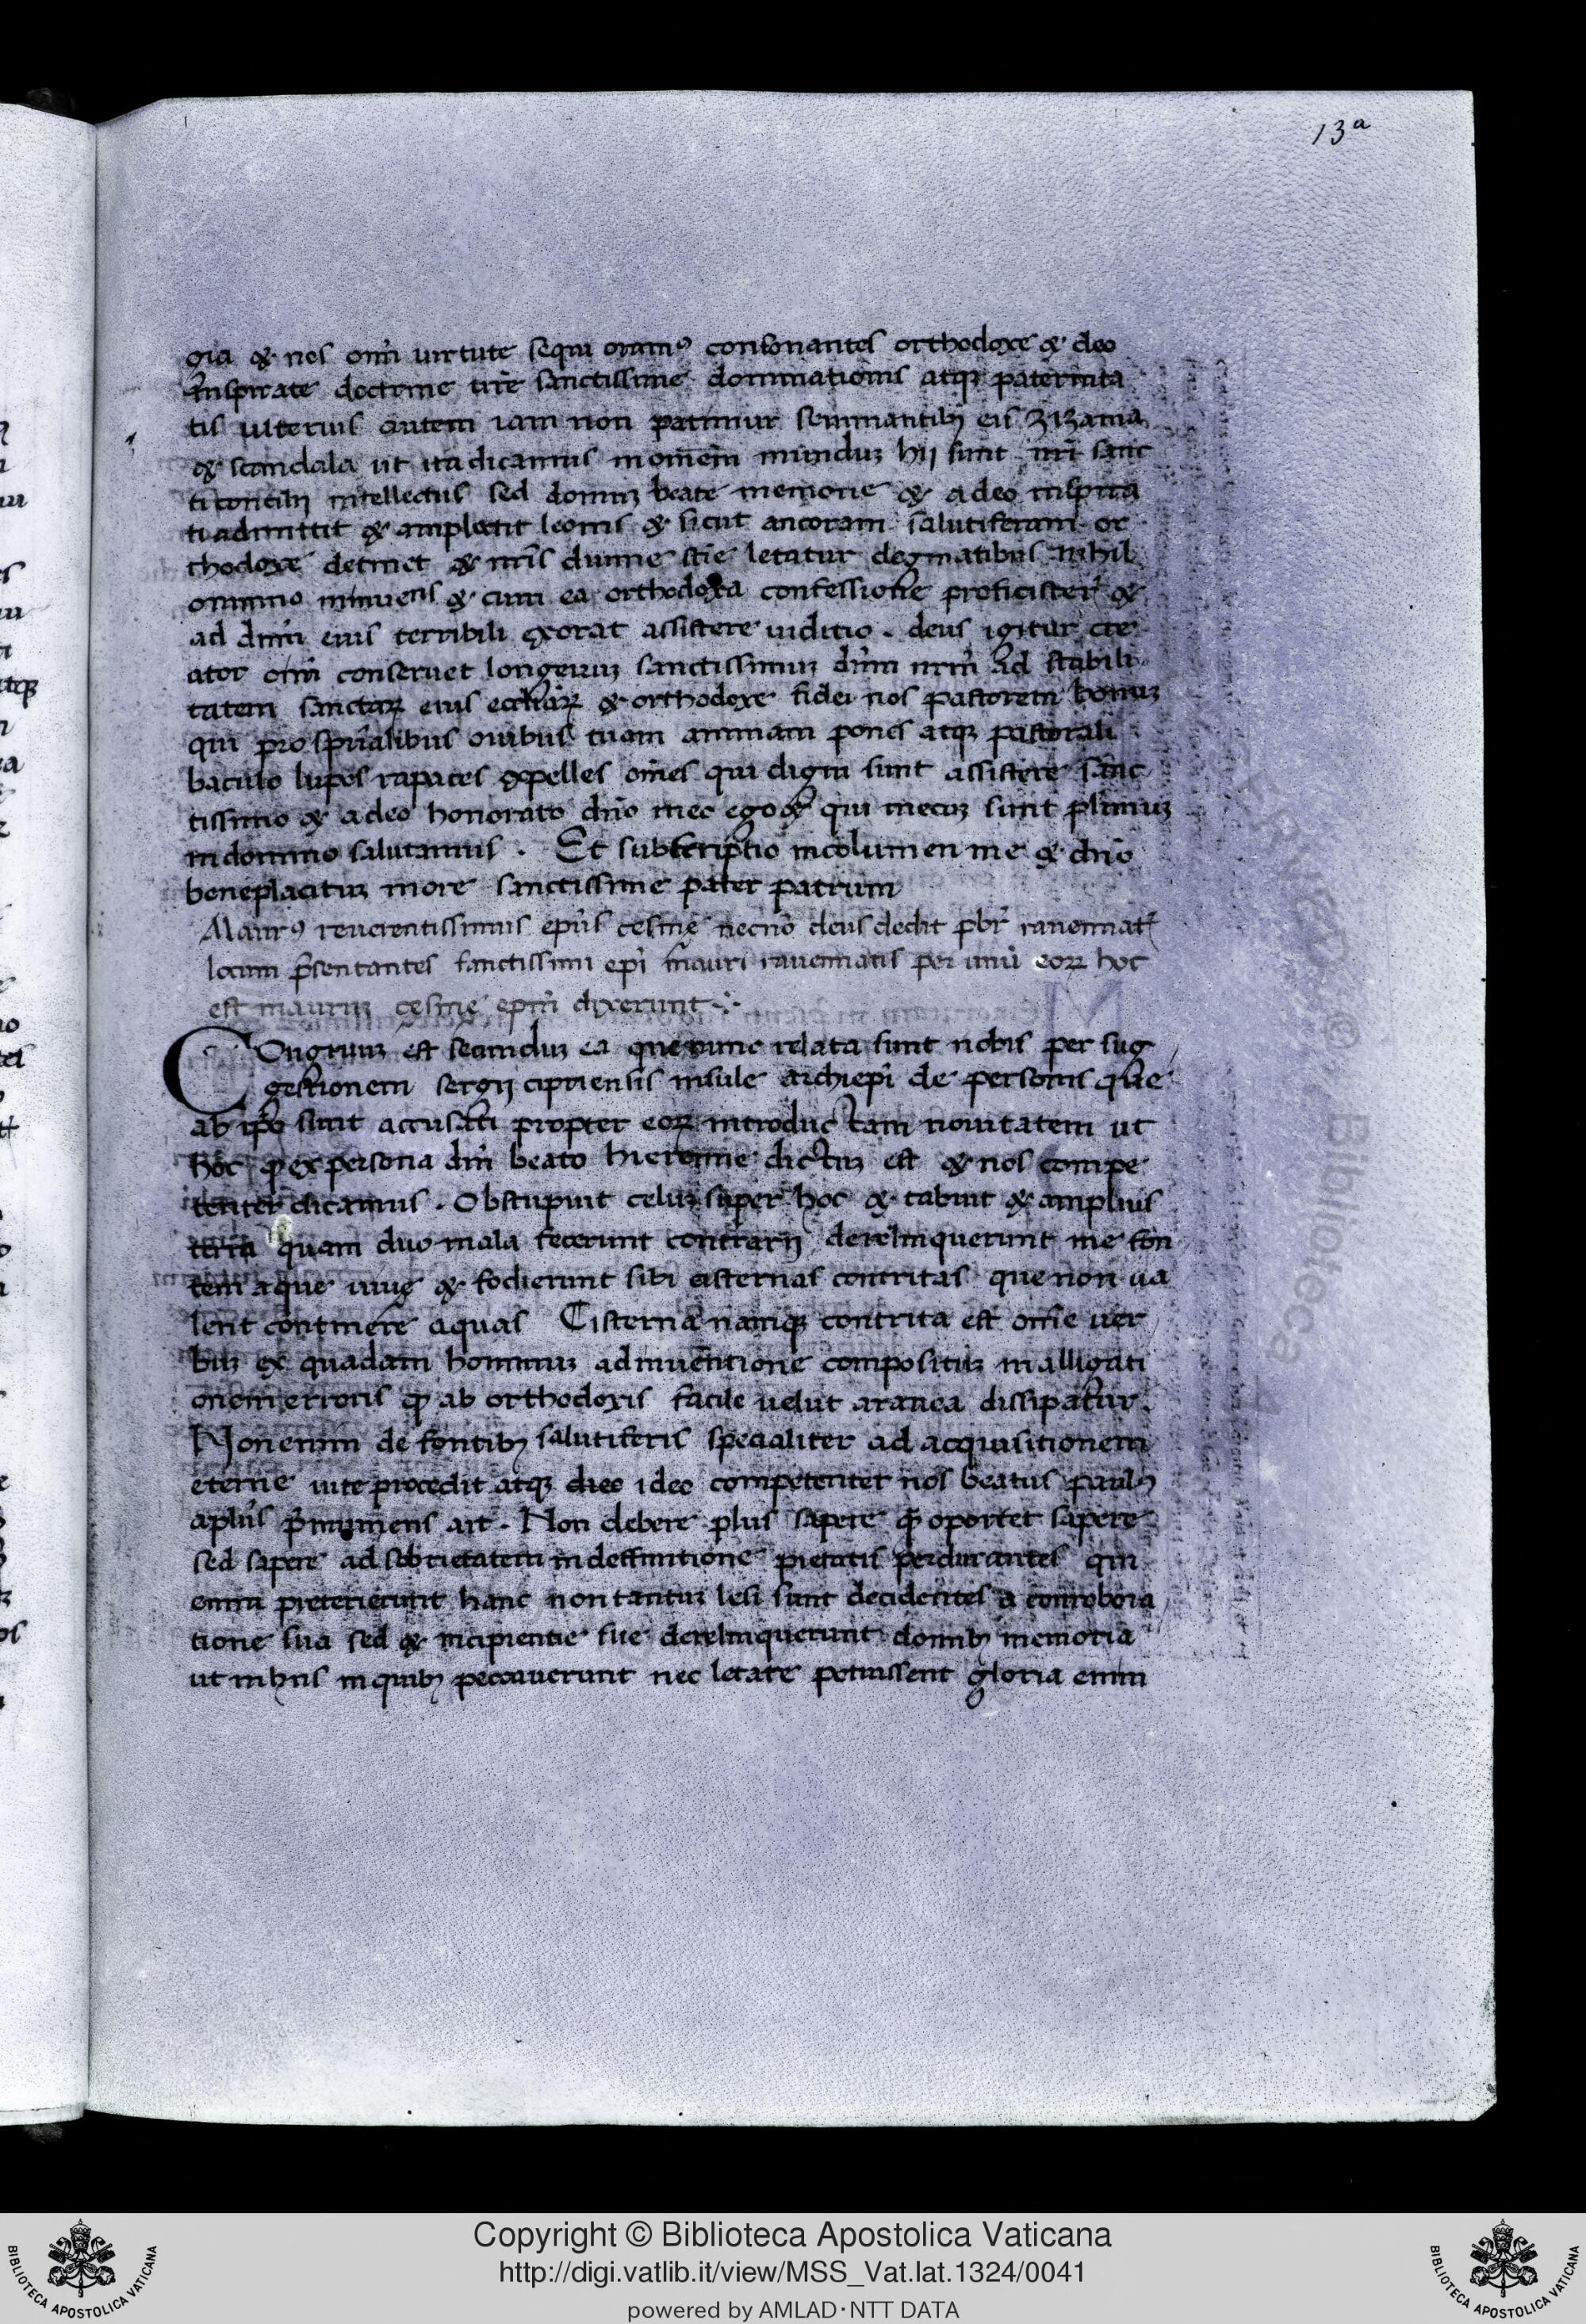 13ª
gia & nos om̄i uirtute sequi oramꝰ consonantes orthodoxe & deo
inspirate doctrine ur̄e sanctissime dominationis atqꝫ paternita
tis ulterius autem iam non patimur seminantibꝫ eis zizania
& scandala ut ita dicamus in omnem munduꝫ hii sunt nr̄i sanc
ti concilij intellectus sed domnꝫ beate memorie & a deo inspira
ti admittit & amplectit leonis & sicut ancoram salutiferam or
thodoxe detinet & nr̄is diuine letatur dogmatibus nihil
omnino minuens & cum ea orthodoxa confessione proficisceř &
ad dn̄m eius terribili exorat assistere iuditio . deus igitur cre
ator om̄i conseruet longeuuꝫ sanctissimuꝫ dn̄m nrm̄ ad stabili
tatem sanctaꝝ eius eccl̄iaꝝ & orthodoxe fidei nos pastorem bonuꝫ
qui pro spūalibus ouibus tuam animam pones atqꝫ pastorali
baculo lupos rapaces expelles om̄es qui digni sunt assistere sanc
tissimo & a deo honorato dn̄o meo ego & qui mecuꝫ sunt plrimuꝫ
in domino salutamus . Et subscriptio incolumen me & dn̄o
beneplacituꝫ more sanctissime pater patrum
Maurꝰ reuerentissimus ep̄us cesinę necnō deus dedit pbr̄ rauennat
locum p̄sentantes sanctissimi ep̄i mauri rauennatis per unū eoꝝ hoc
est mauruꝫ cesinę ep̄m dixerunt ∴
COngruuꝫ est secunduꝫ ea que nunc relata sunt nobis per sug
gestionem sergij cipriensis insule archiep̄i de personis que
ab ip̄o sunt accusati propter eoꝝ introductam nouitatem ut
hoc ꝙ ex persona dn̄i beato hieremie dictuꝫ est & nos compe
tenter dicamus . Obstupuit celuꝫ super hoc & tabuit & amplius
terra quam duo mala fecerunt contrarij derelinquerunt me fon
tem aque uiuę & fodierunt sibi cisternas contritas que non ua
lent continere aquas Cisterna namqꝫ contrita est ome uer
buꝫ ex quadam hominuꝫ adinuentione compositiꝫ in alligati
onem erroris ꝙ ab orthodoxis facile uelut aranea dissipatur .
Non enim de fontibꝫ salutiferis specialiter ad acquisitionem
eterne uite procedit atqꝫ ideo competenter nos beatus paulꝰ
aplūs p̄muniens ait . Non debere plus sapere q̄ oportet sapere
sed sapere ad sobrietatem in deffinitione pietatis perdurantes qui
enim preterierunt hanc non tantuꝫ lesi sunt decidentes a conrobora
tione sua sed & incipientie sue derelinquerunt domibꝫ memoria
ut in hiis in quibꝫ peccauerunt nec letare potuissent gloria enim
Copyright © Biblioteca Apostolica Vaticana
http://digi.vatlib.it/view/MSS_Vat.lat.1324/0041
powered by AMLAD·NTT DATA
BIBLIOTECA APOSTOLICA VATICANA
BIBLIOTECA APOSTOLICA VATICANA